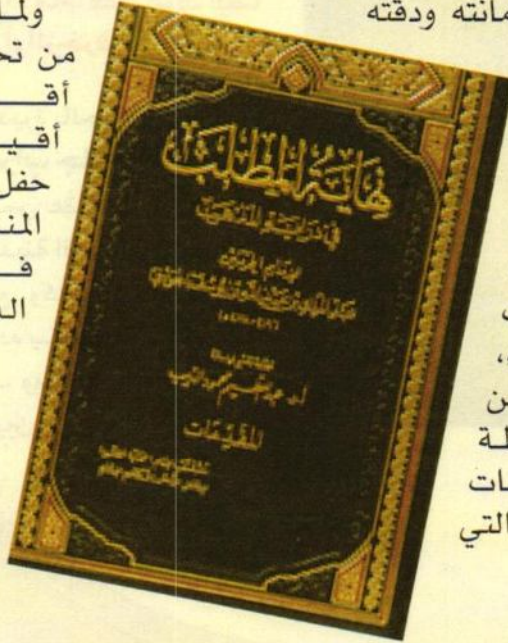 مانته ودقته
ولما
من تح
أقـــ
أقيـ
حفل
المنـ
فـــ
الـ
نهاية المطلب
في دراية المذهب
لإمام الحرمين
عبد الملك بن عبد الله بن يوسف الجويني
أ.د. عبد العظيم محمود الديب
المقدمات
،
ن
لة
ات
التي